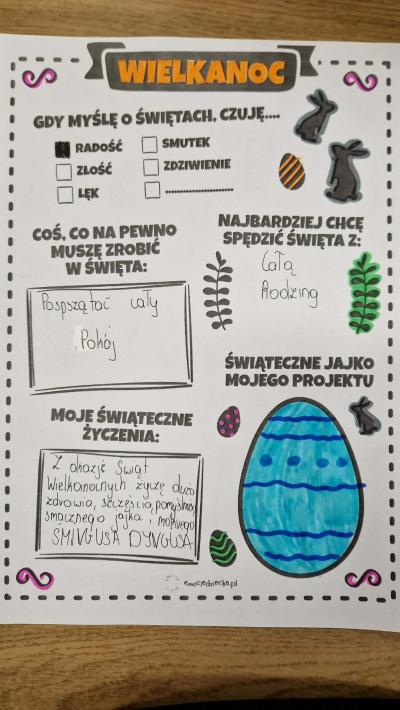 WIELKANOC
GDY MYŚLĘ O ŚWIĘTACH, CZUJĘ....
RADOŚĆ
SMUTEK
ZŁOŚĆ
ZDZIWIENIE
LĘK
....................
COŚ, CO NA PEWNO
MUSZĘ ZROBIĆ
W ŚWIĘTA:
Pospszątać cały
Pokój
NAJBARDZIEJ CHCĘ
SPĘDZIĆ ŚWIĘTA Z:
Całą
Rodziną
ŚWIĄTECZNE JAJKO
MOJEGO PROJEKTU
MOJE ŚWIĄTECZNE
ŻYCZENIA:
Z okazje Świąt
Wielkanocnych życzę dużo
zdrowia, szczęścia, pomyślnoś
smacznego jajka i mokrego
ŚMIGUSA DYNGUSA
emocjedziecka.pl